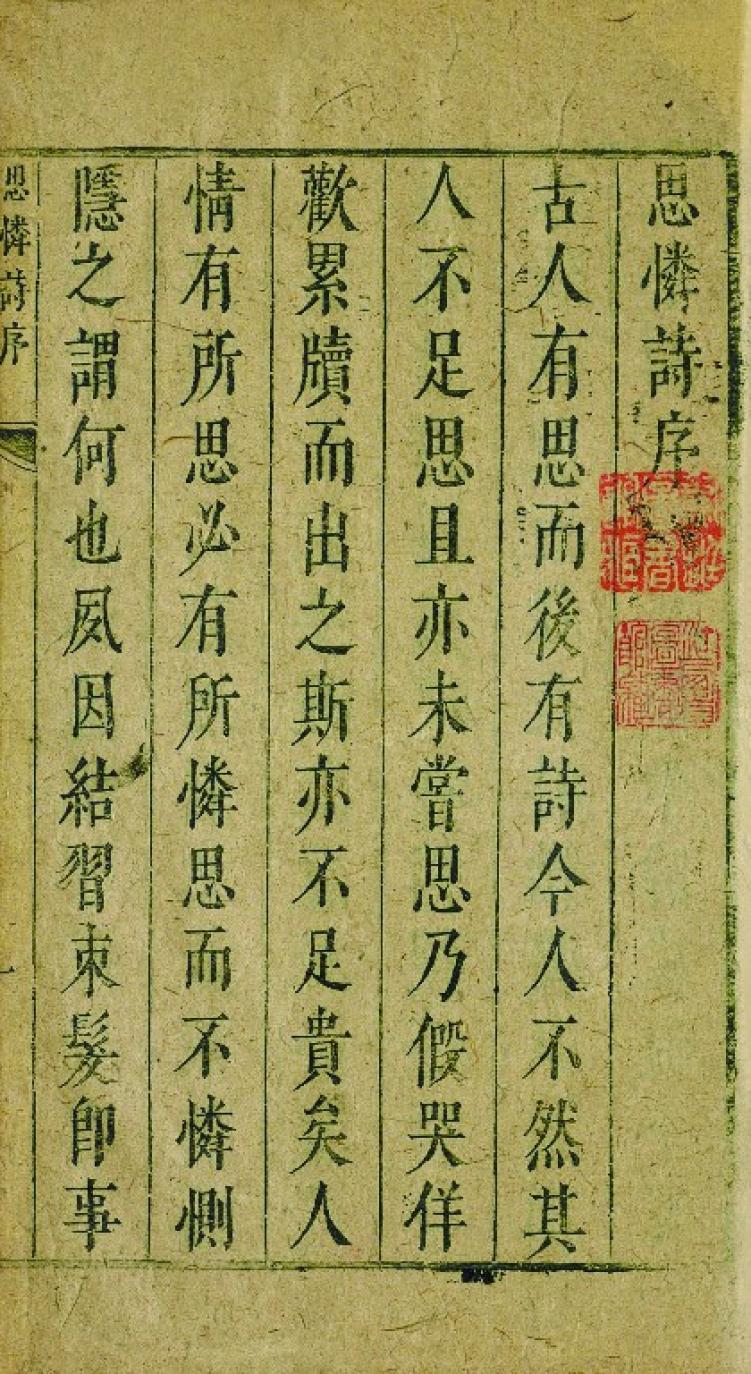 思憐詩序
古人有思而後有詩今人不然其
人不足思且亦未嘗思乃假哭佯
歡累牘而出之斯亦不足貴矣人
情有所思必有所憐思而不憐惻
隱之謂何也夙因結習束髮即事
思憐詩序